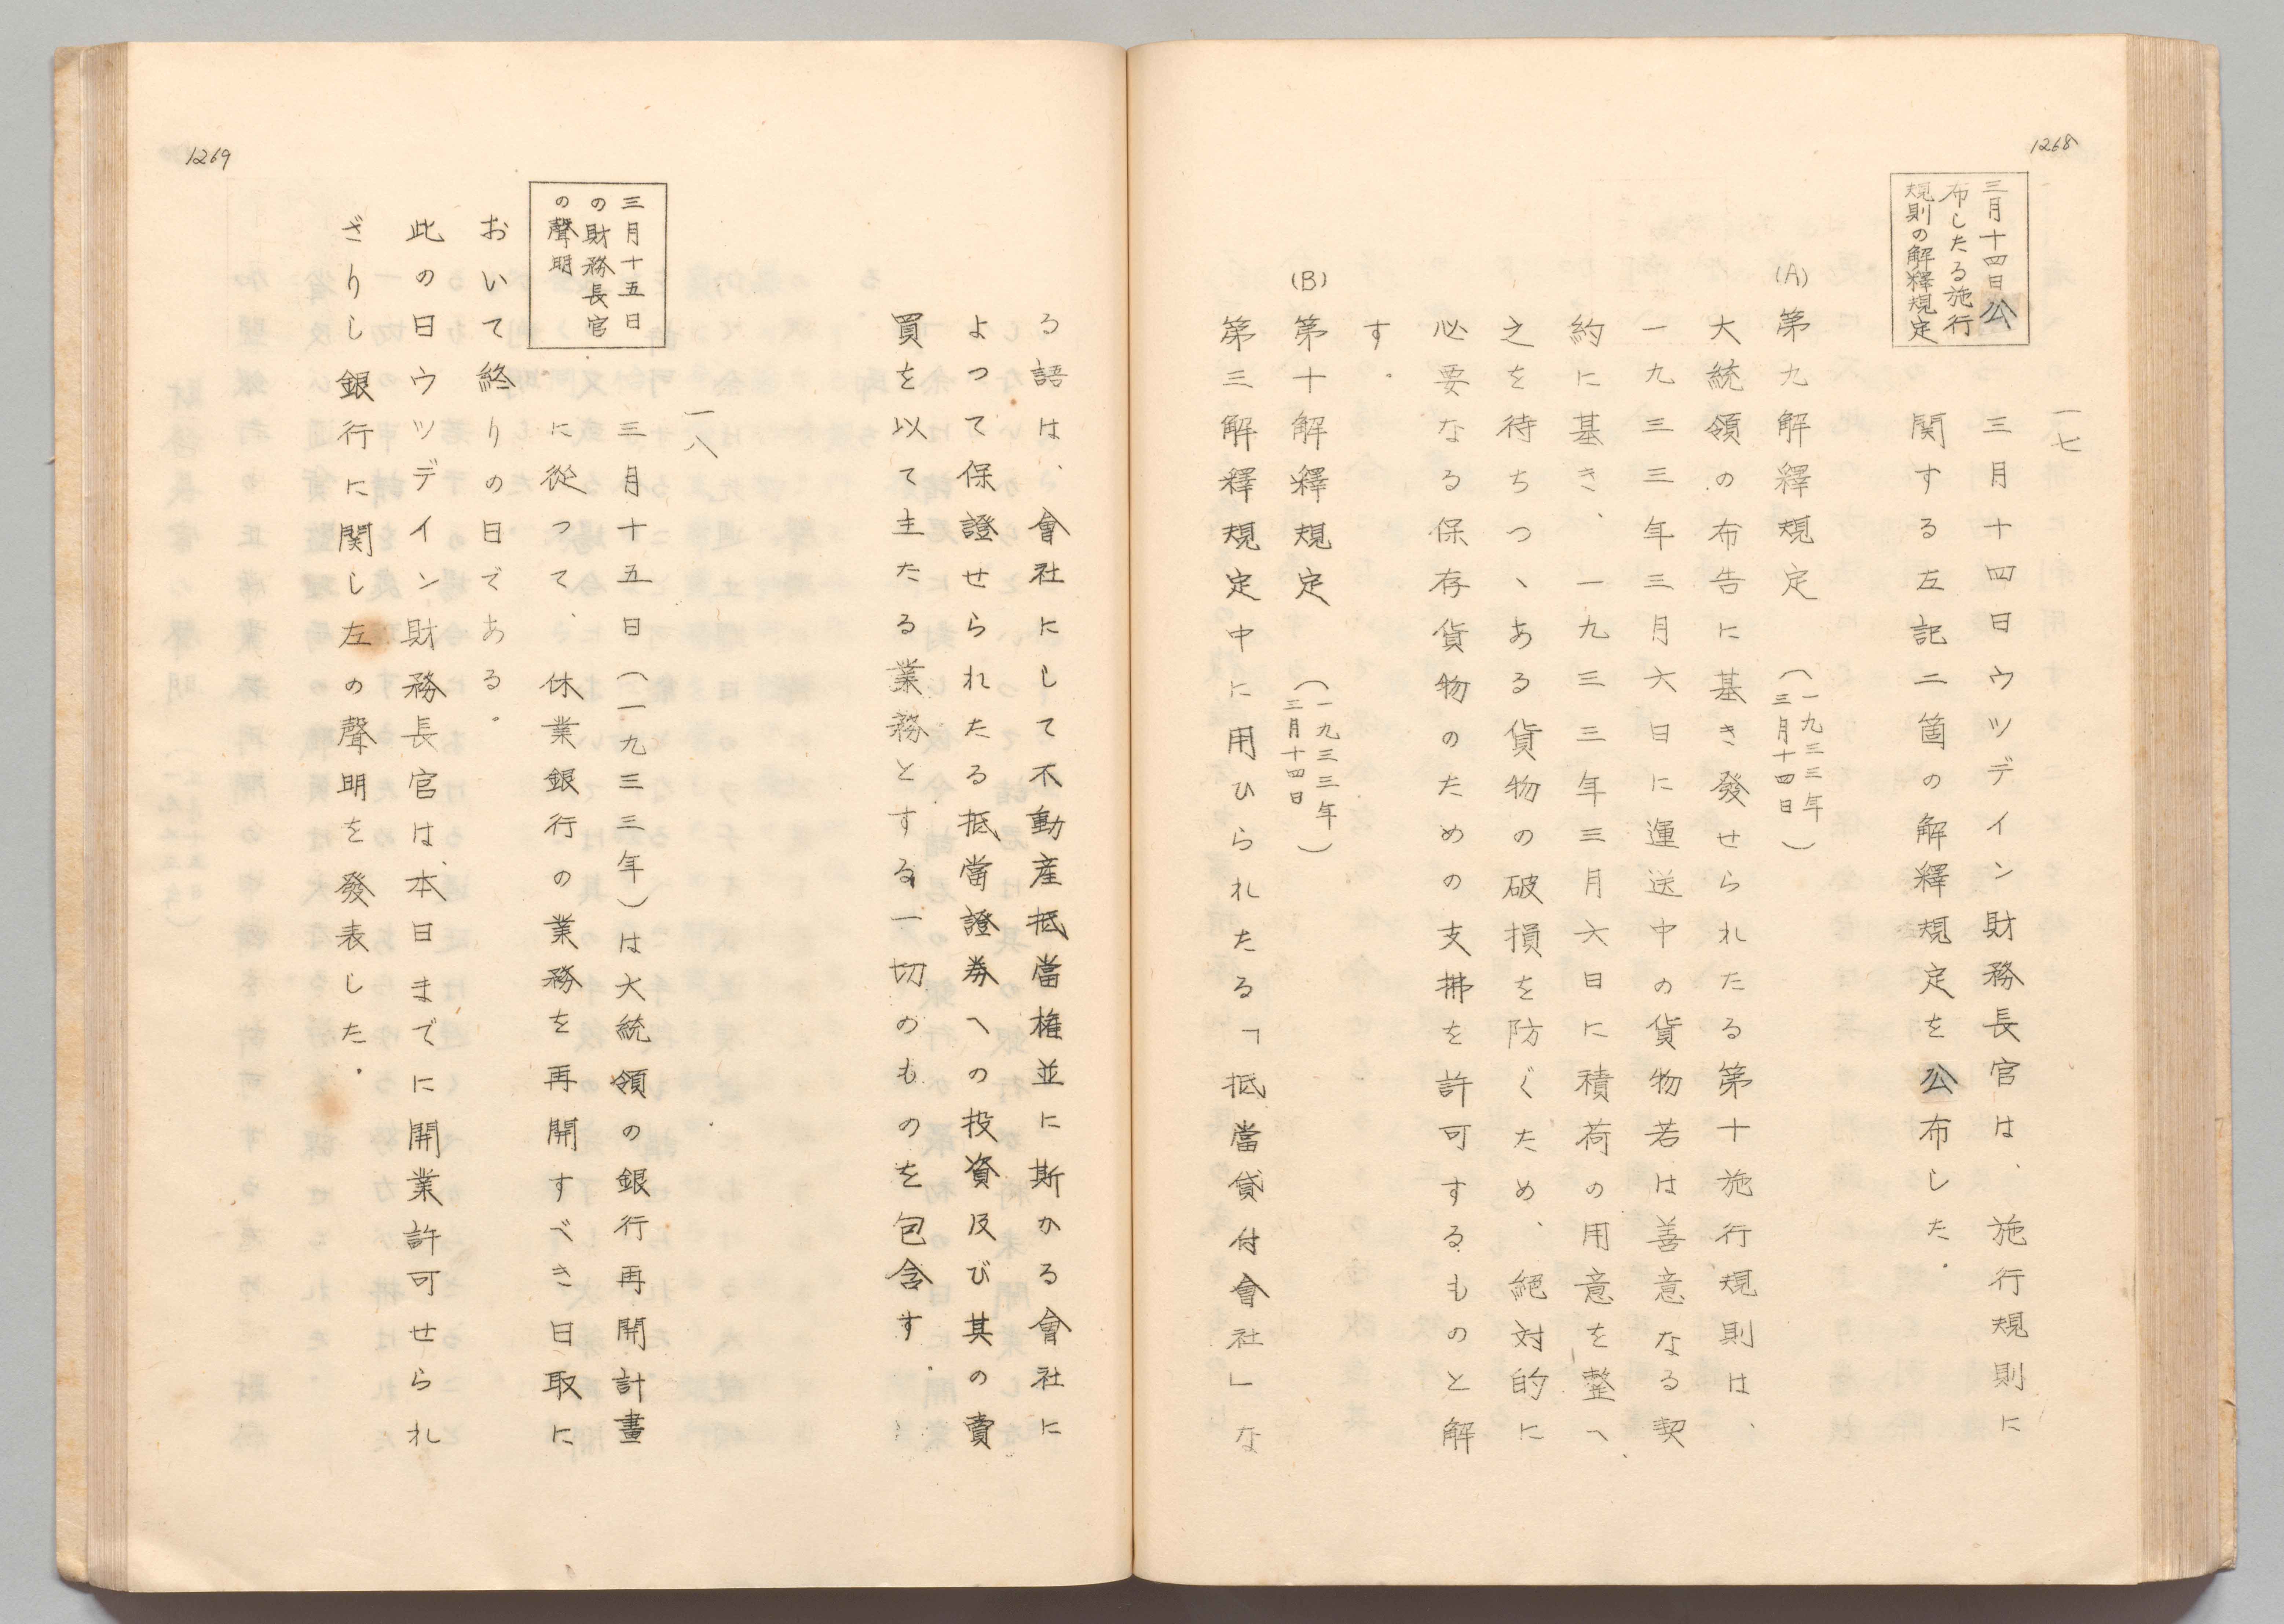 1268
一七
三月十四日公
布したる施行
規則の解釋規定
三月十四日ウツデイン財務長官は、施行規則に
関する左記二箇の解釋規定を公布した。
(A)第九解釋規定（一九三三年三月十四日）
大統領の布告に基き發せられたる第十施行規則は、
一九三三年三月六日に運送中の貨物若は善意なる契
約に基き、一九三三年三月六日に積荷の用意を整へ、
之を待ちつゝある貨物の破損を防ぐため、絕対的に
必要なる保存貨物のための支拂を許可するものと解
す。
(B)第十解釋規定（一九三三年三月十四日）
第三解釋規定中に用ひられたる「抵當貸付會社」な
1269
る語は、會社にして不動産抵當権並に斯かる會社に
よつて保證せられたる抵當證券への投資及び其の賣
買を以て主たる業務とする一切のものを包含す。
一八
三月十五日
の財務長官
の聲明
三月十五日（一九三三年）は大統領の銀行再開計畫
に從つて、休業銀行の業務を再開すべき日取に
おいて終りの日である。
此の日ウツデイン財務長官は、本日までに開業許可せられ
ざりし銀行に関し左の聲明を發表した。